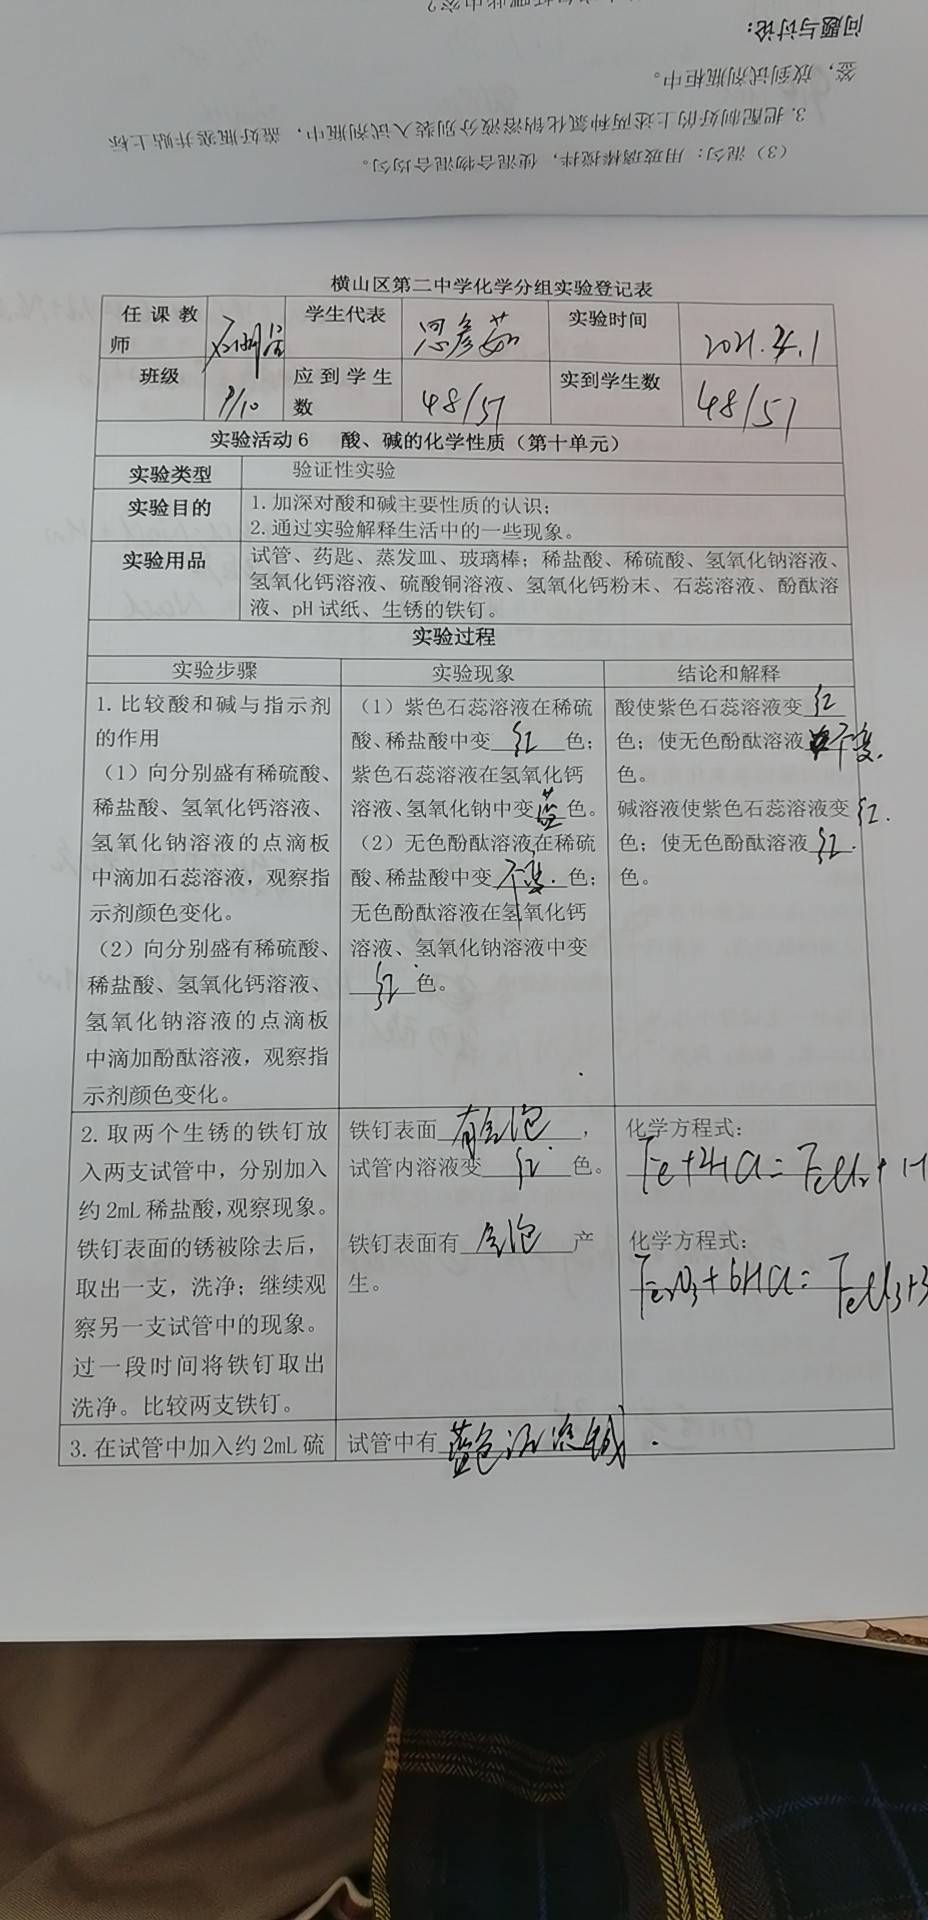 问题与讨论：
签，放到试剂瓶柜中。
3.把配制好的上述两种氯化钠溶液分别装入试剂瓶中，盖好瓶塞并贴上标
（3）混匀：用玻璃棒搅拌，使混合物混合均匀。
横山区第二中学化学分组实验登记表
任课教师 学生代表 思彦茹 实验时间 2021.4.1
班级 9/10 应到学生数 48/51 实到学生数 48/51
实验活动6 酸、碱的化学性质（第十单元）
实验类型 验证性实验
实验目的 1.加深对酸和碱主要性质的认识；
2.通过实验解释生活中的一些现象。
实验用品 试管、药匙、蒸发皿、玻璃棒；稀盐酸、稀硫酸、氢氧化钠溶液、
氢氧化钙溶液、硫酸铜溶液、氢氧化钙粉末、石蕊溶液、酚酞溶
液、pH试纸、生锈的铁钉。
实验过程
实验步骤 实验现象 结论和解释
1.比较酸和碱与指示剂
的作用
（1）向分别盛有稀硫酸、
稀盐酸、氢氧化钙溶液、
氢氧化钠溶液的点滴板
中滴加石蕊溶液，观察指
示剂颜色变化。
（2）向分别盛有稀硫酸、
稀盐酸、氢氧化钙溶液、
氢氧化钠溶液的点滴板
中滴加酚酞溶液，观察指
示剂颜色变化。
（1）紫色石蕊溶液在稀硫
酸、稀盐酸中变红色；
紫色石蕊溶液在氢氧化钙
溶液、氢氧化钠中变蓝色。
（2）无色酚酞溶液在稀硫
酸、稀盐酸中变不变.色；
无色酚酞溶液在氢氧化钙
溶液、氢氧化钠溶液中变
红色。
酸使紫色石蕊溶液变红
色；使无色酚酞溶液不变.
色。
碱溶液使紫色石蕊溶液变红.
色；使无色酚酞溶液红.
色。
2.取两个生锈的铁钉放
入两支试管中，分别加入
约2mL稀盐酸，观察现象。
铁钉表面的锈被除去后，
取出一支，洗净；继续观
察另一支试管中的现象。
过一段时间将铁钉取出
洗净。比较两支铁钉。
铁钉表面有气泡，
试管内溶液变红色。
铁钉表面有气泡产
生。
化学方程式：
Fe+2HCl=FeCl₂+H
化学方程式：
Fe₂O₃+6HCl=FeCl₃+3
3.在试管中加入约2mL硫
试管中有蓝色沉淀